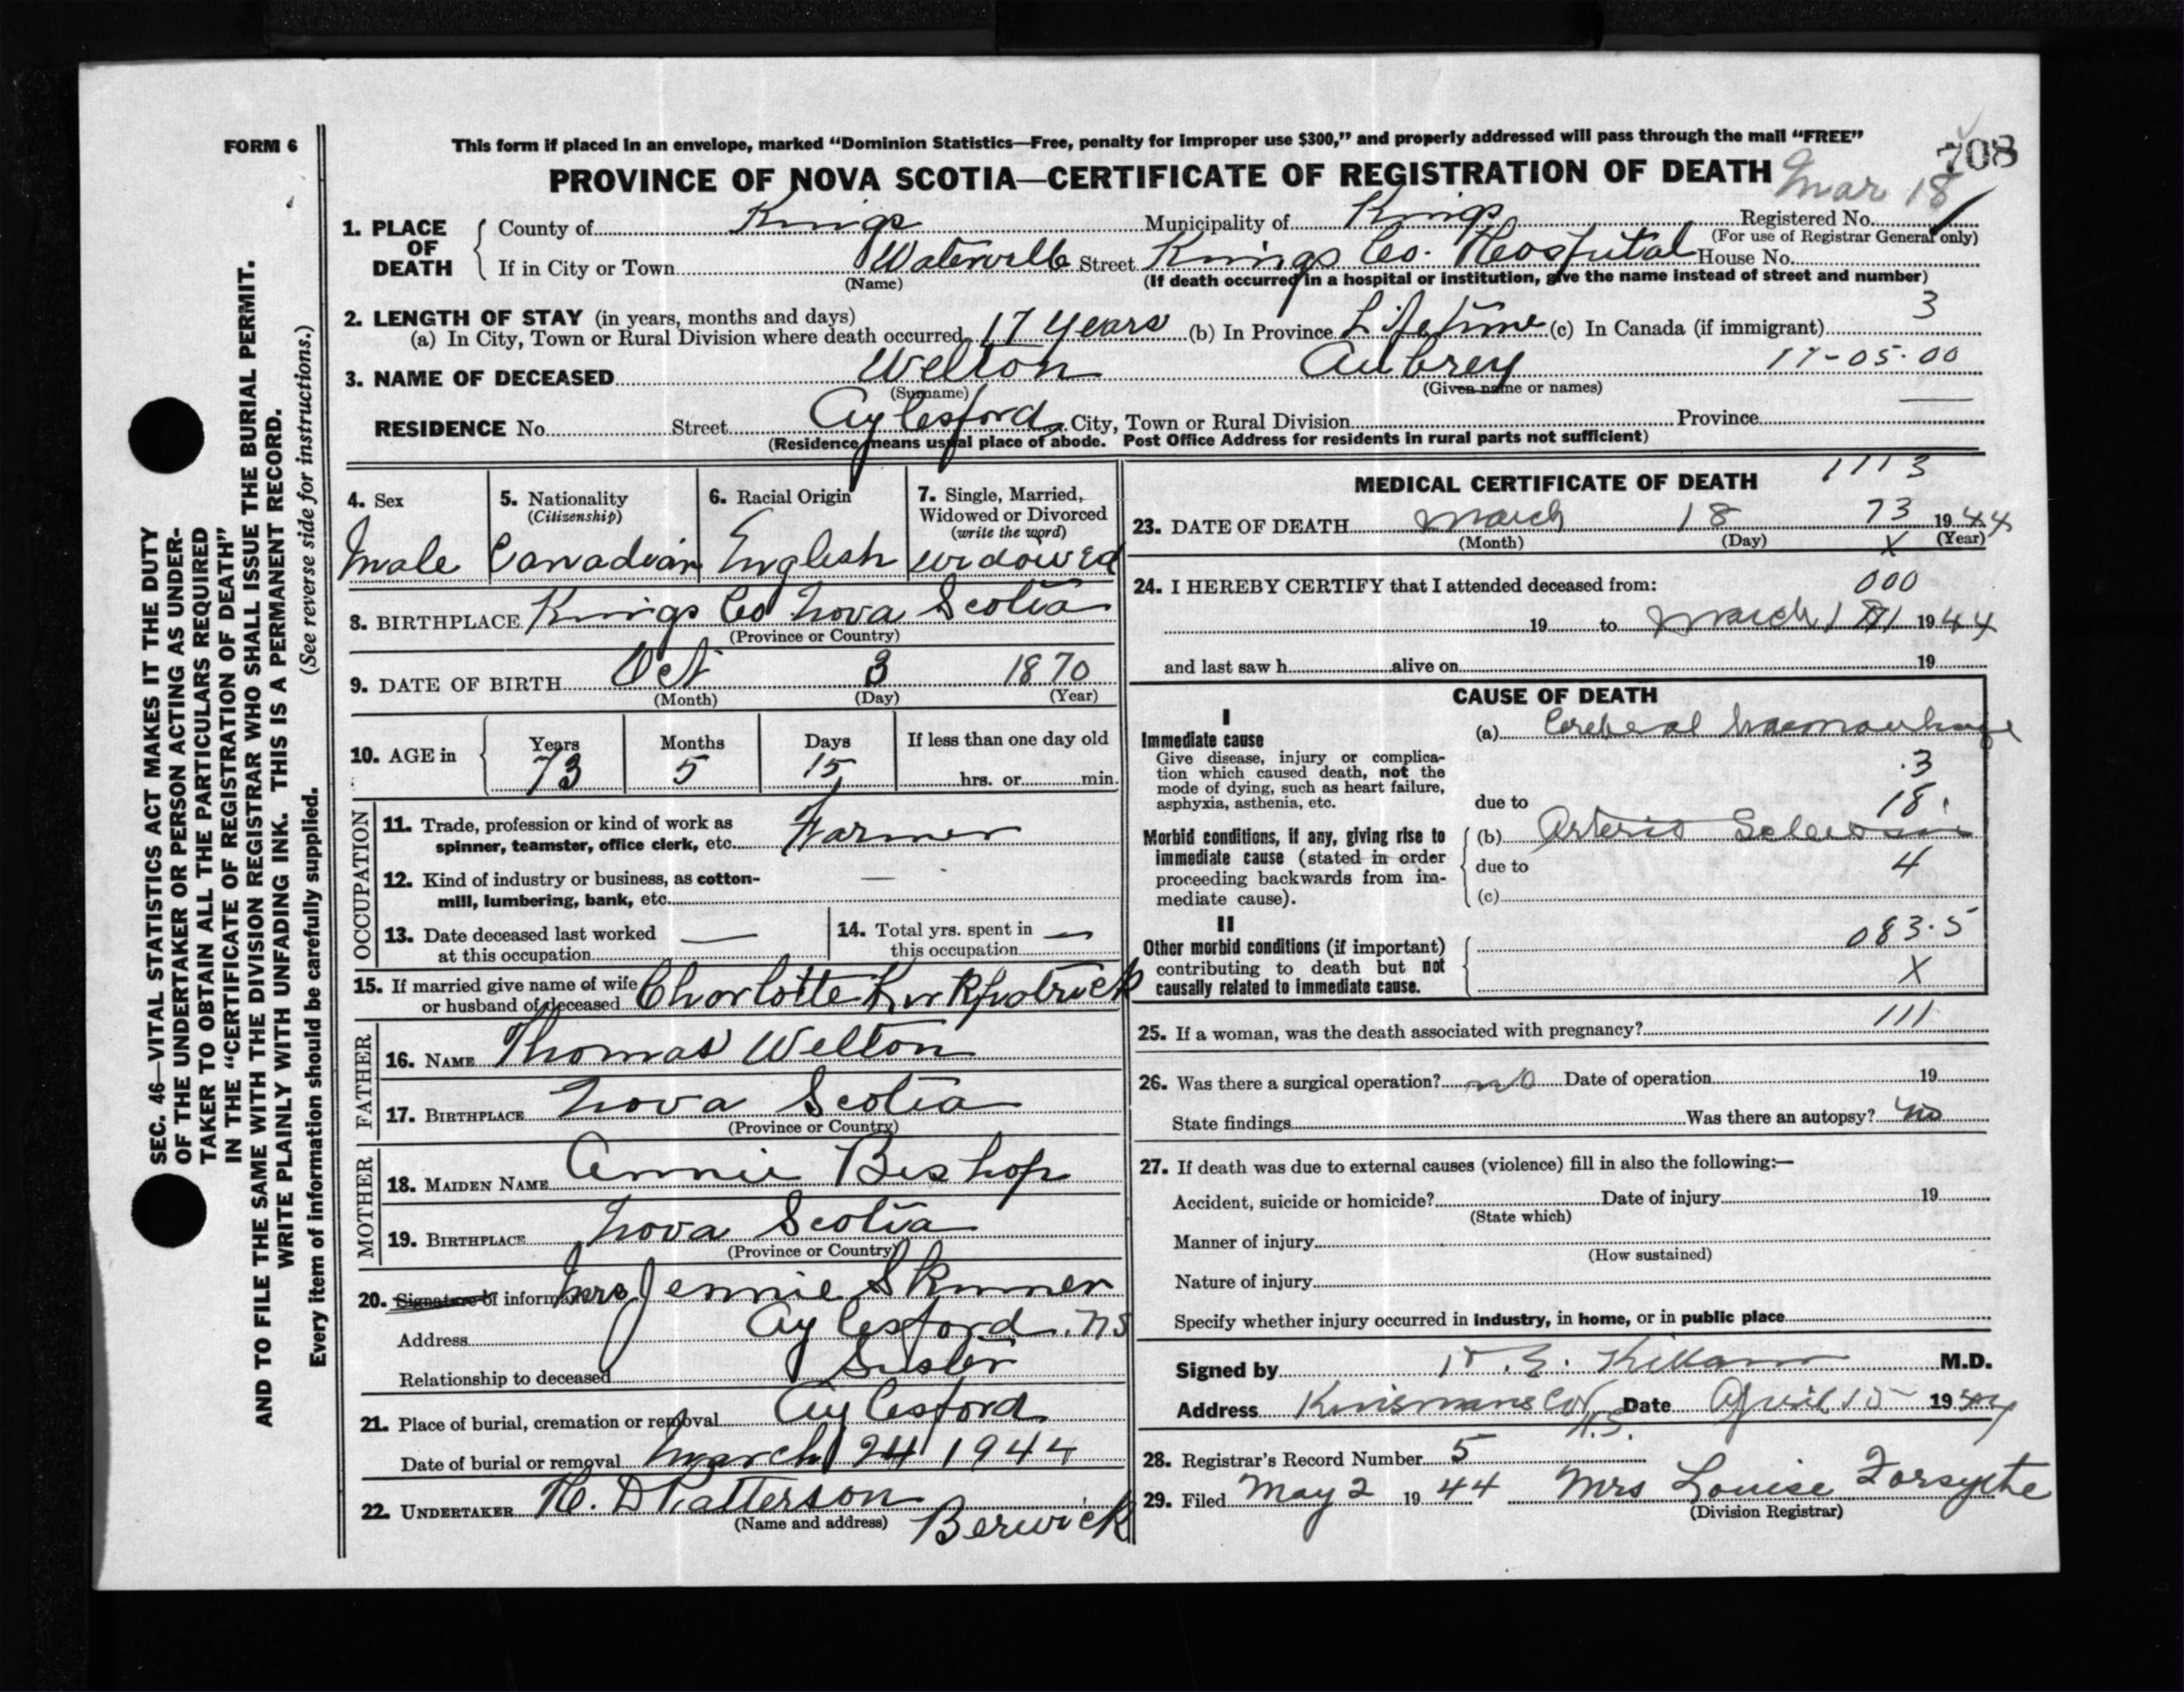 FORM 6
This form if placed in an envelope, marked “Dominion Statistics—Free, penalty for improper use $300,” and properly addressed will pass through the mail “FREE”
708
PROVINCE OF NOVA SCOTIA—CERTIFICATE OF REGISTRATION OF DEATH
Mar 18
1. PLACE OF DEATH
County of Kings Municipality of Kings Registered No.
(For use of Registrar General only)
If in City or Town Waterville Street Kings Co. Hospital House No.
(Name) (If death occurred in a hospital or institution, give the name instead of street and number)
2. LENGTH OF STAY (in years, months and days) 3
(a) In City, Town or Rural Division where death occurred 17 years (b) In Province Lifetime (c) In Canada (if immigrant)
3. NAME OF DECEASED Welton Aubrey 17-05-00
(Surname) (Given name or names)
RESIDENCE No. Street Aylesford City, Town or Rural Division Province
(Residence means usual place of abode. Post Office Address for residents in rural parts not sufficient)
4. Sex
Male
5. Nationality
(Citizenship)
Canadian
6. Racial Origin
English
7. Single, Married,
Widowed or Divorced
(write the word)
widowed
8. BIRTHPLACE Kings Co Nova Scotia
(Province or Country)
9. DATE OF BIRTH Oct 3 1870
(Month) (Day) (Year)
10. AGE in
Years Months Days If less than one day old
73 5 15 hrs. or min.
OCCUPATION
11. Trade, profession or kind of work as
spinner, teamster, office clerk, etc. Farmer
12. Kind of industry or business, as cotton-
mill, lumbering, bank, etc. —
13. Date deceased last worked —
at this occupation
14. Total yrs. spent in —
this occupation
15. If married give name of wife
or husband of deceased Charlotte Kirkpatrick
FATHER
16. NAME Thomas Welton
17. BIRTHPLACE Nova Scotia
(Province or Country)
MOTHER
18. MAIDEN NAME Annie Bishop
19. BIRTHPLACE Nova Scotia
(Province or Country)
20. Signature of informant Mrs Jennie Skinner
Address Aylesford. NS
Relationship to deceased Sister
21. Place of burial, cremation or removal Aylesford
Date of burial or removal March 24 1944
22. UNDERTAKER H. D Patterson
(Name and address) Berwick
MEDICAL CERTIFICATE OF DEATH 1113
23. DATE OF DEATH March 18 73 1944
(Month) (Day) X (Year)
24. I HEREBY CERTIFY that I attended deceased from: 000
19 to March 18 1944
and last saw h alive on 19
CAUSE OF DEATH
I
Immediate cause
Give disease, injury or complica-
tion which caused death, not the
mode of dying, such as heart failure,
asphyxia, asthenia, etc.
(a) Cerebral haemorrhage
.3
due to 18.
Morbid conditions, if any, giving rise to
immediate cause (stated in order
proceeding backwards from im-
mediate cause).
(b) Arterio Sclerosis
due to 4
(c)
II
Other morbid conditions (if important)
contributing to death but not
causally related to immediate cause.
083.5
X
25. If a woman, was the death associated with pregnancy? 111
26. Was there a surgical operation? no Date of operation 19
State findings Was there an autopsy? no
27. If death was due to external causes (violence) fill in also the following:—
Accident, suicide or homicide? Date of injury 19
(State which)
Manner of injury
(How sustained)
Nature of injury
Specify whether injury occurred in industry, in home, or in public place
Signed by E. Killam M.D.
Address Kinsmans Cor N.S. Date April 15 1944
28. Registrar's Record Number 5
29. Filed May 2 19 44 Mrs Louise Forsythe
(Division Registrar)
SEC. 46—VITAL STATISTICS ACT MAKES IT THE DUTY
OF THE UNDERTAKER OR PERSON ACTING AS UNDER-
TAKER TO OBTAIN ALL THE PARTICULARS REQUIRED
IN THE “CERTIFICATE OF REGISTRATION OF DEATH”
AND TO FILE THE SAME WITH THE DIVISION REGISTRAR WHO SHALL ISSUE THE BURIAL PERMIT.
WRITE PLAINLY WITH UNFADING INK. THIS IS A PERMANENT RECORD.
Every item of information should be carefully supplied. (See reverse side for instructions.)